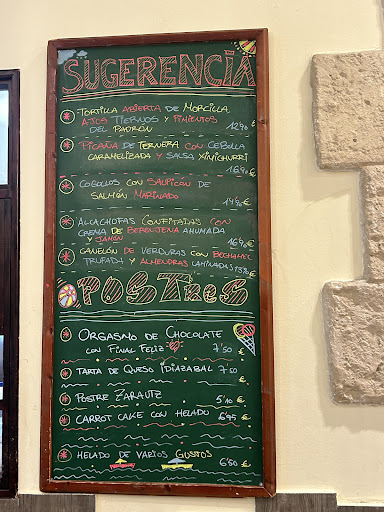 SUGERENCIA
TORTILLA ABIERTA DE MORCILLA
AJOS TIERNOS Y PIMIENTOS
DEL PADRÓN 12'40€
PICAÑA DE TERNERA CON CEBOLLA
CARAMELIZADA Y SALSA XIMICHURRI
16'40€
COGOLLOS CON SALPICÓN DE
SALMÓN MARINADO 14'40€
ALCACHOFAS CONFITADAS CON
CREMA DE BERENJENA AHUMADA
Y JAMÓN 16'40€
CANELÓN DE VERDURAS CON BECHAMEL
TRUFADA Y ALMENDRAS LAMINADAS €
POSTRES
ORGASMO DE CHOCOLATE
CON FINAL FELIZ 7'50 €
TARTA DE QUESO IDIAZABAL 7'50
€
POSTRE ZARAUTZ 5'10 €
CARROT CAKE CON HELADO 6'95 €
HELADO DE VARIOS GUSTOS
6'50 €